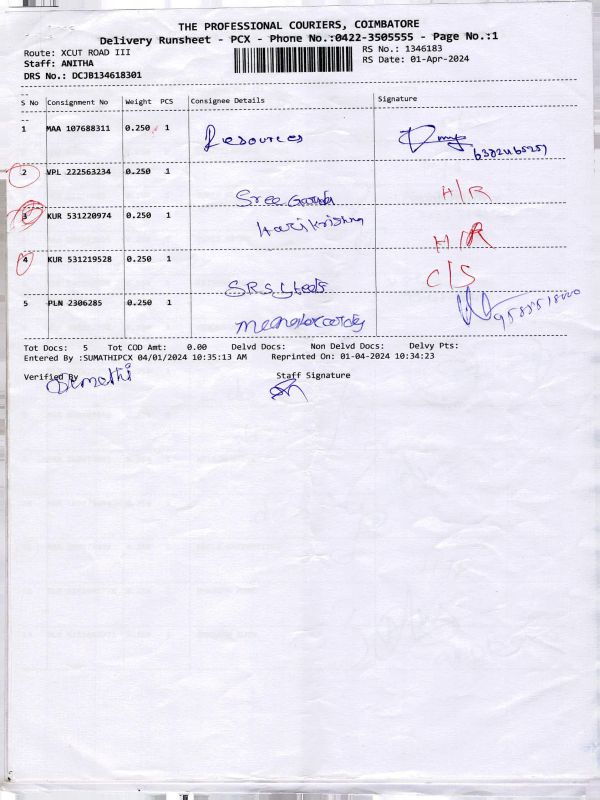 THE PROFESSIONAL COURIERS, COIMBATORE
Delivery Runsheet - PCX - Phone No.:0422-3505555 - Page No.:1
Route: XCUT ROAD III
RS No.: 1346183
Staff: ANITHA
RS Date: 01-Apr-2024
DRS No.: DCJB134618301
S No Consignment No Weight PCS Consignee Details Signature
1 MAA 107688311 0.250 1 Resources
6382465257
2 VPL 222563234 0.250 1 H/R
Sree
3 KUR 531220974 0.250 1 Harikrishna
H/R
4 KUR 531219528 0.250 1 C/S
SRS Steels
5 PLN 2306285 0.250 1
Tot Docs: 5 Tot COD Amt: 0.00 Delvd Docs: Non Delvd Docs: Delvy Pts:
Entered By :SUMATHIPCX 04/01/2024 10:35:13 AM Reprinted On: 01-04-2024 10:34:23
Verified By Staff Signature
Sumathi